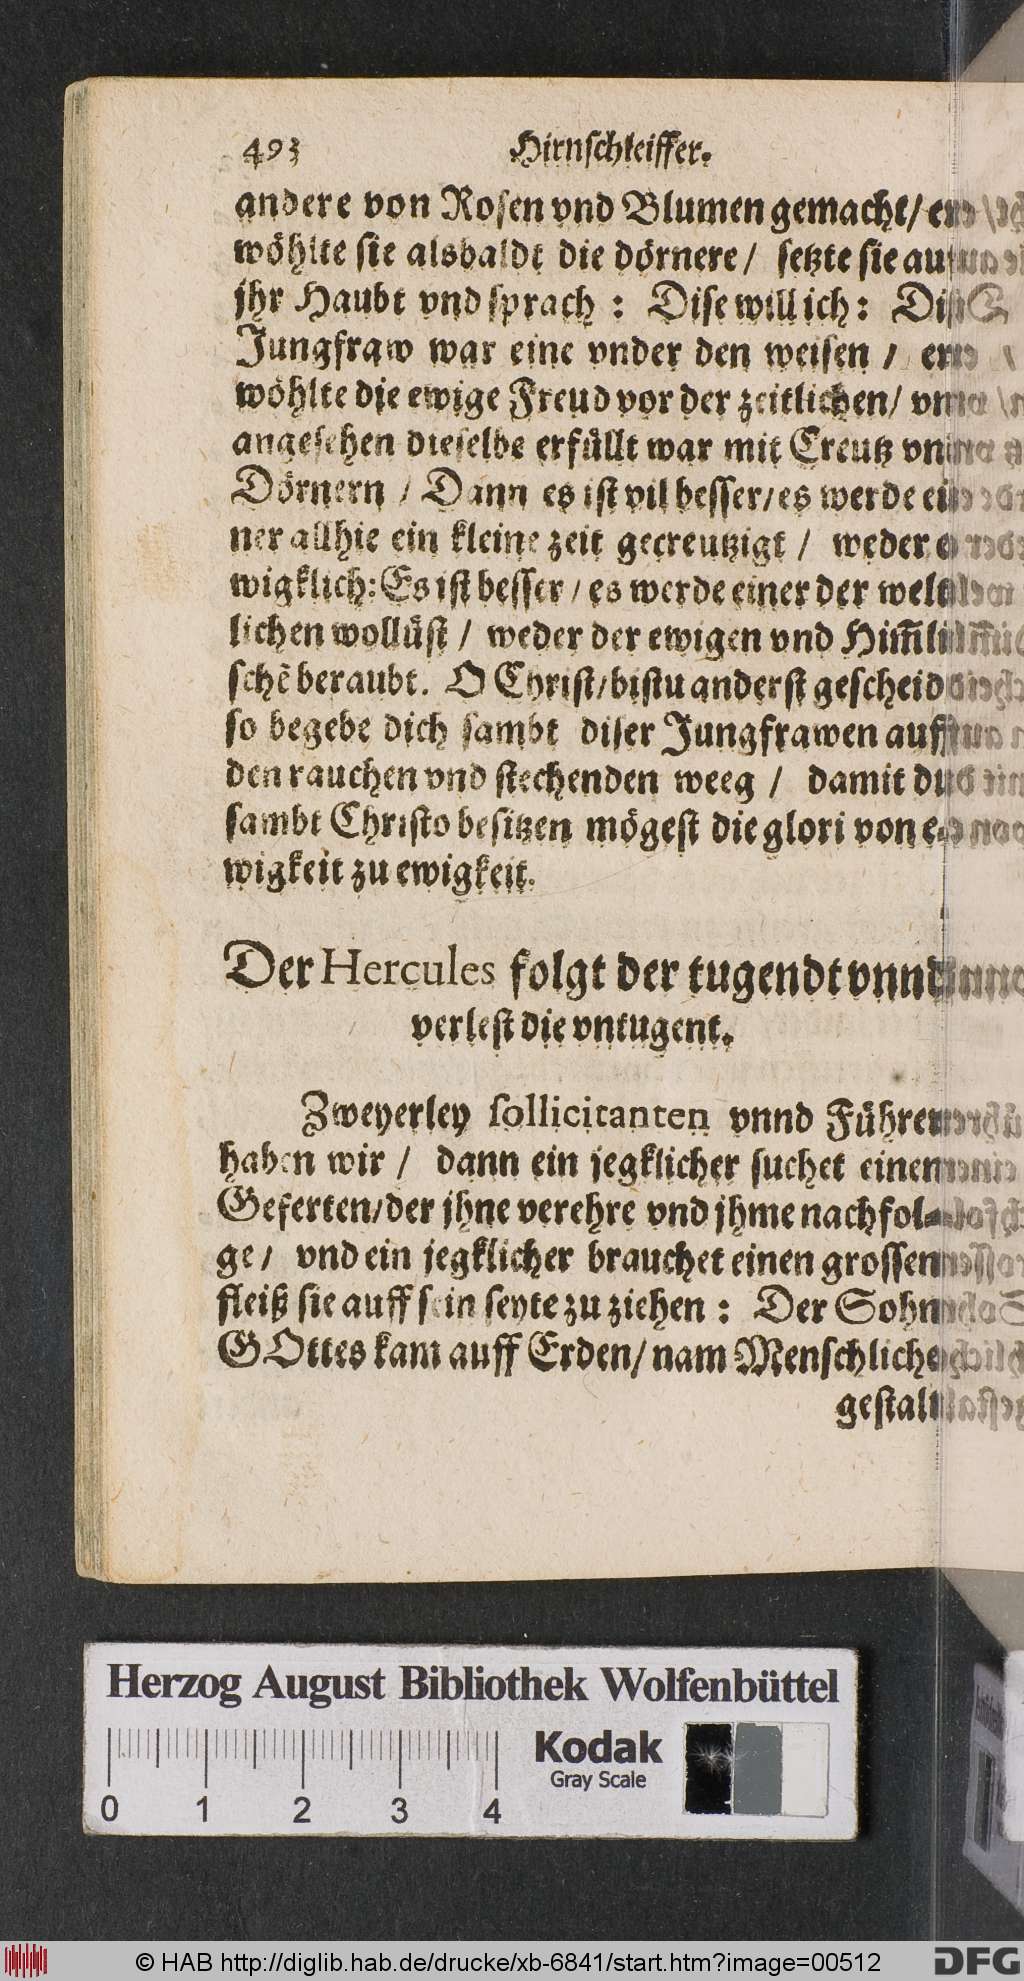 493 Hirnschleiffer.
andere von Rosen vnd Blumen gemacht/ er-
wöhlte sie alsbaldt die dörnere/ setzte sie auf
jhr Haubt vnd sprach : Dise will ich : Dise
Jungfraw war eine vnder den weisen / er-
wöhlte die ewige Freud vor der zeitlichen/ vn
angesehen dieselbe erfüllt war mit Creutz vnd
Dörnern / Dann es ist vil besser/ es werde ei-
ner allhie ein kleine zeit gecreutzigt / weder e-
wigklich: Es ist besser / es werde einer der welt-
lichen wollüst / weder der ewigen vnd Him̃li-
schẽ beraubt. O Christ/ bistu anderst gescheid
so begebe dich sambt diser Jungfrawen auff
den rauchen vnd stechenden weeg / damit du
sambt Christo besitzen mögest die glori von e-
wigkeit zu ewigkeit.
Der Hercules folgt der tugendt vnnd
verlest die vntugent.
Zweyerley sollicitanten vnnd Führer
haben wir / dann ein jegklicher suchet einen
Geferten/ der jhne verehre vnd jhme nachfol-
ge / vnd ein jegklicher brauchet einen grossen
fleiß sie auff sein seyte zu ziehen : Der Sohn
GOttes kam auff Erden/ nam Menschliche
gestalt
Herzog August Bibliothek Wolfenbüttel
Kodak
Gray Scale
0 1 2 3 4
© HAB http://diglib.hab.de/drucke/xb-6841/start.htm?image=00512 DFG